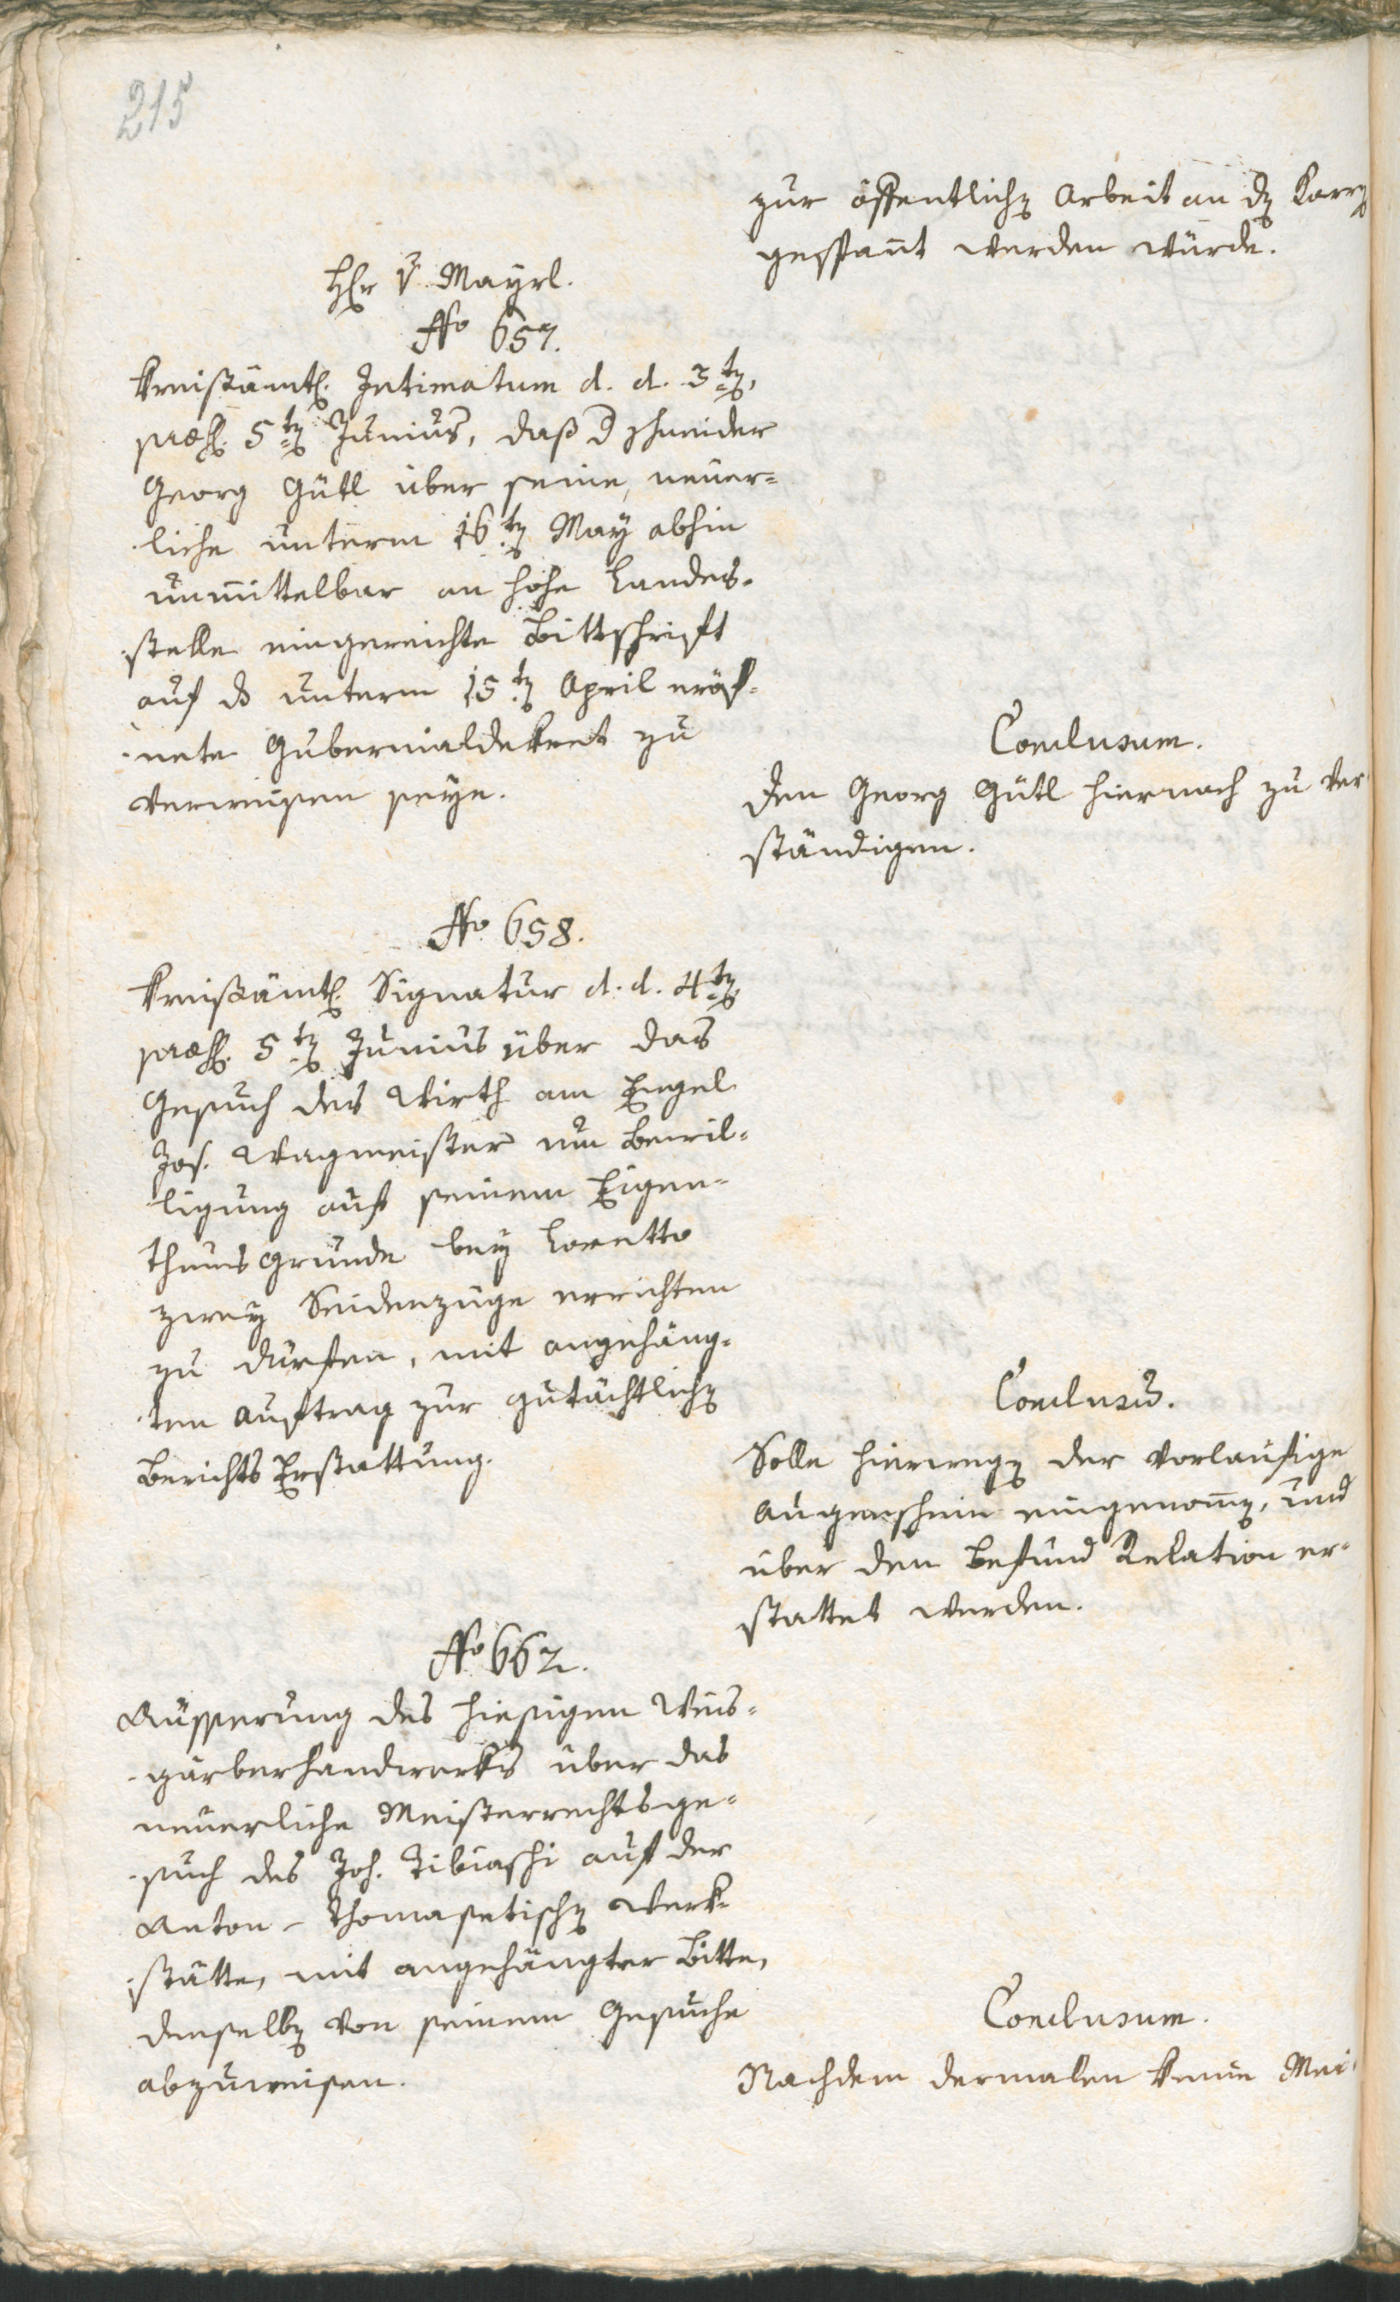 215
zur öffentlichen Arbeit an den Karrn
gespannt werden würde.
Herr v. Mayrl.
No 657.
Kreisämtl. Intimatum d. d. 3ten,
praes. 5ten Junius, daß der Schneider
Georg Gütl über seine, neuer=
liche unterm 16ten May abhin
unmittelbar an hohe Landes=
stelle eingereichte Bittschrift
auf das unterm 15ten April eröf=
nete Gubernialdekret zu
verweisen seye.
Conclusum.
Den Georg Gütl hiernach zu ver
ständigen.
No 658.
Kreisämtl. Signatur d. d. 4ten
praes. 5ten Junius über das
Gesuch des Wirth am Engel
Jos. Wagmeister um Bewil=
ligung auf seinem Eigen=
thumsgrunde bey Loretto
zwey Seidenzüge errichten
zu dürfen, mit angehäng=
ten Auftrag zur gutächtlichen
Berichts Erstattung.
Conclusum.
Solle hierwegen der vorläufige
Augenschein eingenommen, und
über den Befund Relation er=
stattet werden.
No 662.
Äusserung des hiesigen Weis=
gärberhandwerks über das
neuerliche Meisterrechtsge=
such des Joh. Tibiaschi auf der
Anton-Thomasetischen Werk=
stätte, mit angehängter Bitte,
denselben von seinem Gesuche
abzuweisen.
Conclusum.
Nachdem dermalen keine Mei=